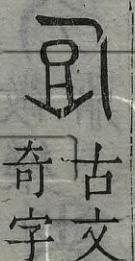 古文
奇字